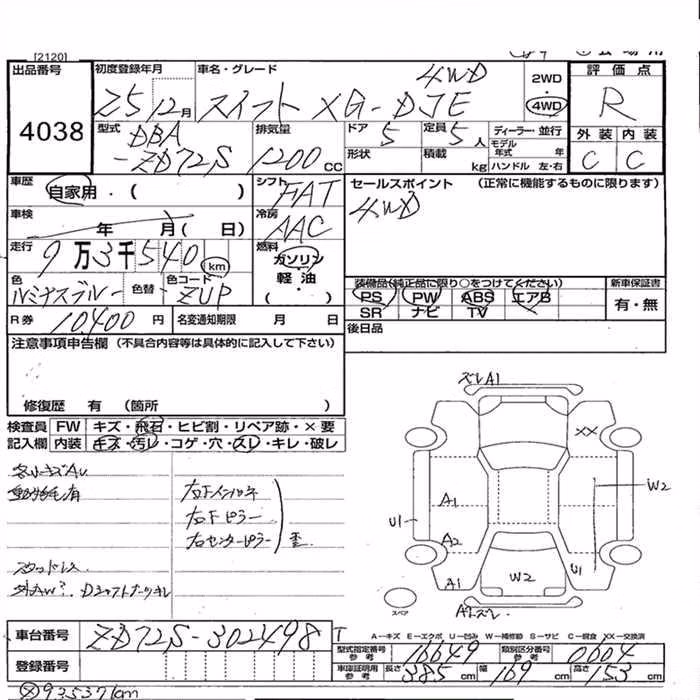 [2120]
出品番号
4038
初度登録年月
Z5 12月
車名・グレード
4WD
スイフト XG-DJE
2WD
4WD
評価点
R
外装 内装
C C
型式
DBA
-ZD72S
排気量
1200 cc
ドア 5
定員 5人
形状
積載 kg
ディーラー・並行
モデル年式 年
ハンドル 左・右
車歴
自家用・( )
シフト FAT
セールスポイント (正常に機能するものに限ります)
4WD
車検
年 月( 日)
冷房 AAC
走行
9万3千540 km
燃料
ガソリン・軽油・
色
ルミナスブルー
色替
色コード
ZUP
装備品(純正品に限り○をつけてください)
PS PW ABS エアB
SR ナビ TV
新車保証書
有・無
R券 10,400円
名変通知期限 月 日
後日品
注意事項申告欄(不具合内容等は具体的に記入して下さい)
修復歴 有 (箇所 )
検査員記入欄
FW キズ・飛石・ヒビ割・リペア跡・×要
内装 キズ・汚レ・コゲ・穴・スレ・キレ・破レ
各小キズAu
動物毛有
スタッドレス
右Fインロネ
右Fピラー
右センターピラー
歪
Dシャフトブーツキレ
ズレA1
XX
A1
W2
U1
A2
A1
W2
U1
A2ズレ
スペア
A-キズ E-エクボ U-凹み W-補修跡 S-サビ C-腐食 XX-交換済
車台番号 ZD72S-302498
登録番号
型式指定番号 参考 16649
類別区分番号 参考 0604
車庫証明用 参考 長さ 385cm 幅 169cm 高さ 153cm
93537km